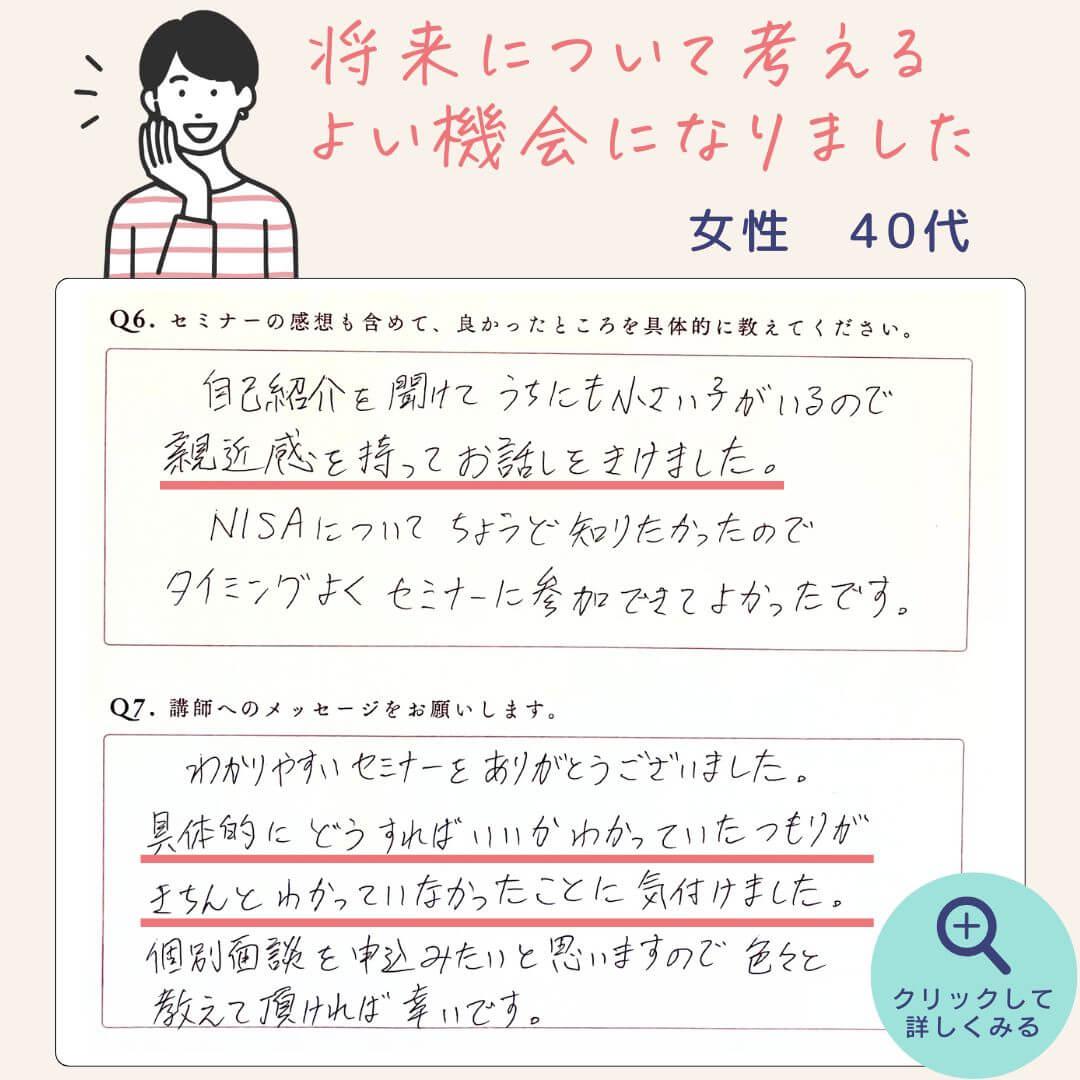 将来について考える
よい機会になりました
女性　40代
Q6. セミナーの感想も含めて、良かったところを具体的に教えてください。
自己紹介を聞けて うちにも小さい子がいるので
親近感を持ってお話しをきけました。
NISAについて ちょうど知りたかったので
タイミングよく セミナーに参加できてよかったです。
Q7. 講師へのメッセージをお願いします。
わかりやすいセミナーを ありがとうございました。
具体的に どうすればいいか わかっていたつもりが
きちんと わかっていなかったことに 気付けました。
個別面談を申込みたいと思いますので 色々と
教えて頂ければ 幸いです。
クリックして
詳しくみる